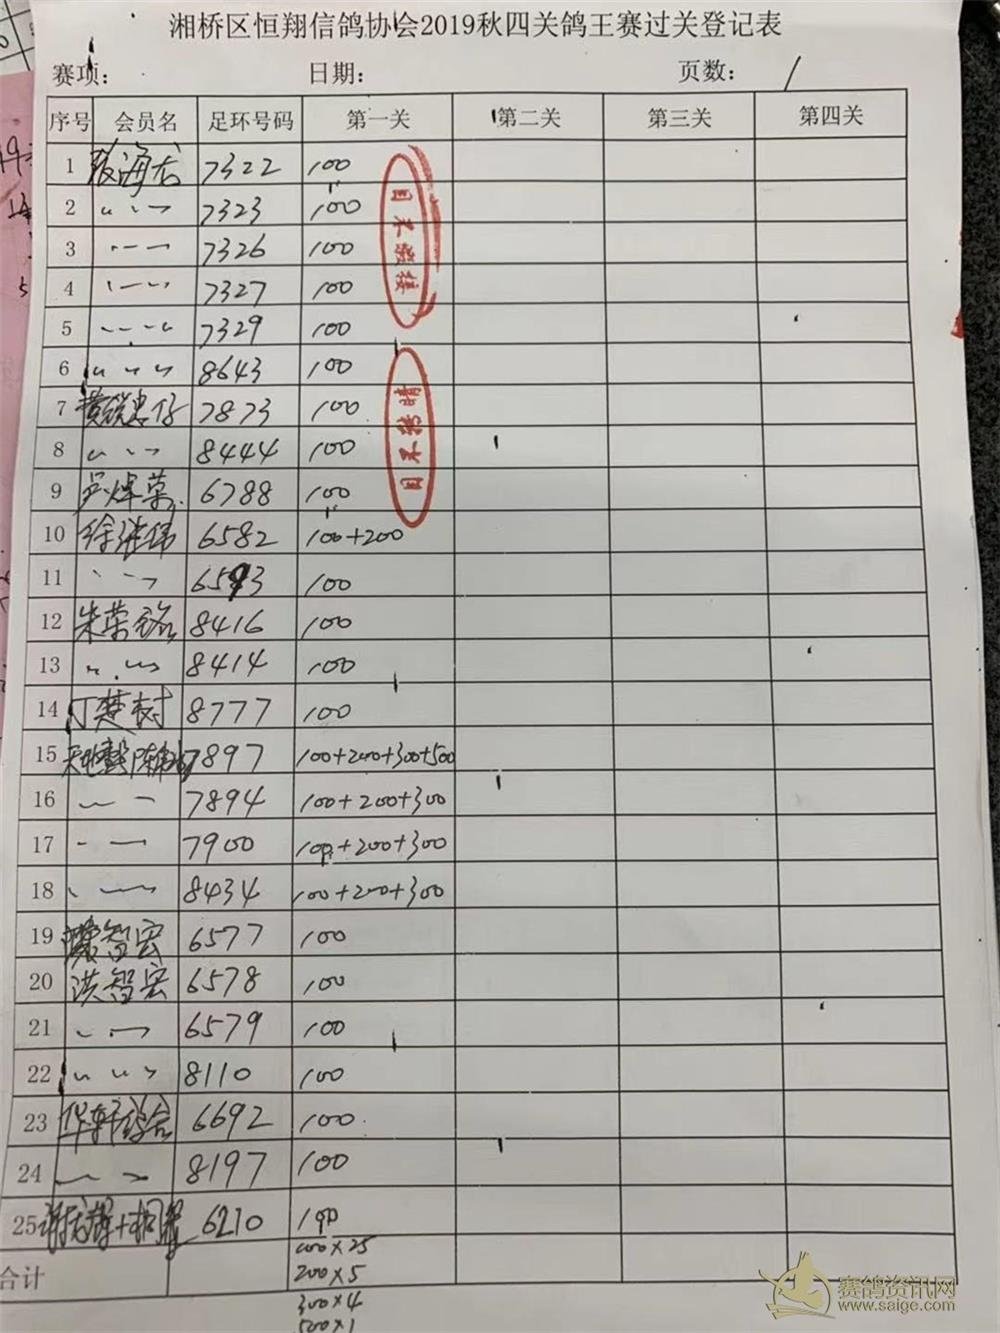 湘桥区恒翔信鸽协会2019秋四关鸽王赛过关登记表
赛项： 日期： 页数： /
序号 会员名 足环号码 第一关 第二关 第三关 第四关
1 张海龙 7322 100
2 〃 7323 100
3 〃 7326 100
4 〃 7327 100
5 〃 7329 100
6 〃 8643 100
7 7873 100
8 〃 8444 100
9 6788 100
10 6582 100+200
11 〃 6593 100
12 朱荣铭 8416 100
13 〃 8414 100
14 丁楚树 8777 100
15 7897 100+200+300+500
16 〃 7894 100+200+300
17 〃 7900 100+200+300
18 〃 8434 100+200+300
19 智宏 6577 100
20 洪智宏 6578 100
21 〃 6579 100
22 〃 8110 100
23 华轩鸽舍 6692 100
24 〃 8197 100
25 6210 100
合计 100×25
200×5
300×4
500×1
赛鸽资讯网
www.saige.com